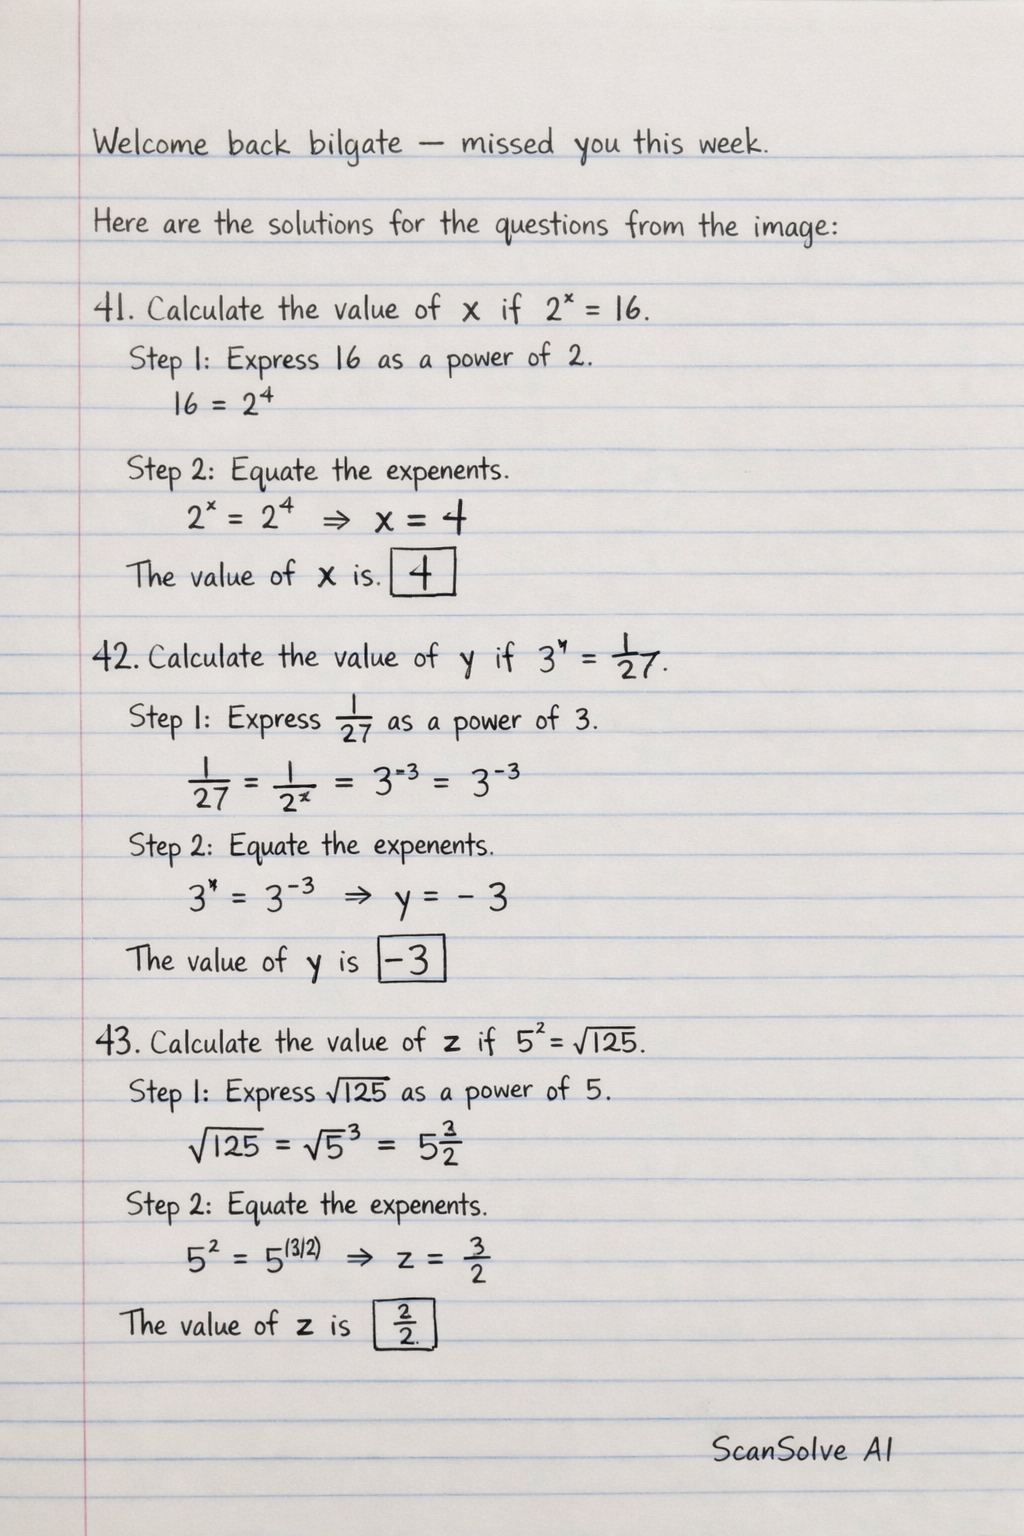 Welcome back bilgate — missed you this week.
Here are the solutions for the questions from the image:
41. Calculate the value of x if 2ˣ = 16.
Step 1: Express 16 as a power of 2.
16 = 2⁴
Step 2: Equate the expenents.
2ˣ = 2⁴ ⇒ x = 4
The value of x is. 4
42. Calculate the value of y if 3ʸ = 1/27.
Step 1: Express 1/27 as a power of 3.
1/27 = 1/2ˣ = 3⁻³ = 3⁻³
Step 2: Equate the expenents.
3ˣ = 3⁻³ ⇒ y = - 3
The value of y is -3
43. Calculate the value of z if 5² = √125.
Step 1: Express √125 as a power of 5.
√125 = √5³ = 5 3/2
Step 2: Equate the expenents.
5² = 5⁽³/²⁾ ⇒ z = 3/2
The value of z is 2/2.
ScanSolve AI